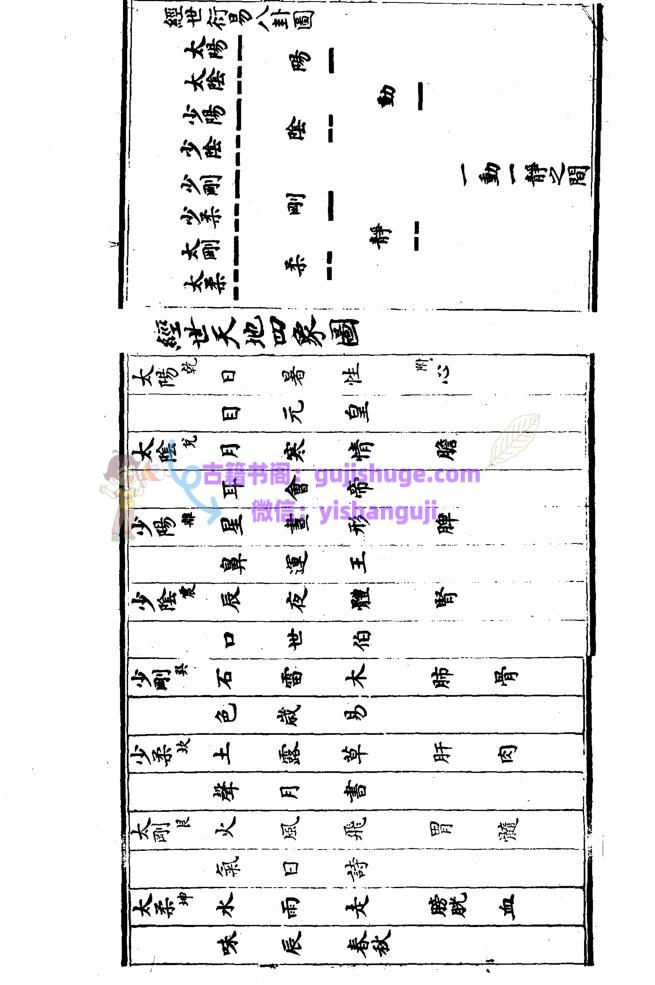 經世衍易八卦圖
太陽
太陰
少陽
少陰
少剛
少柔
太剛
太柔
陽
陰
剛
柔
動
靜
一動一靜之間
經世天地四象圖
太陽乾 日 暑 性 附心
目 元 皇
太陰兌 月 寒 情 膽
耳 會 帝
少陽離 星 晝 形 脾
鼻 運 王
少陰震 辰 夜 體 腎
口 世 伯
少剛巽 石 雷 木 肺 骨
色 歲 易
少柔坎 土 露 草 肝 肉
聲 月 書
太剛艮 火 風 飛 胃 髓
氣 日 詩
太柔坤 水 雨 走 膀胱 血
味 辰 春秋
古籍书阁：gujishuge.com
微信：yishanguji